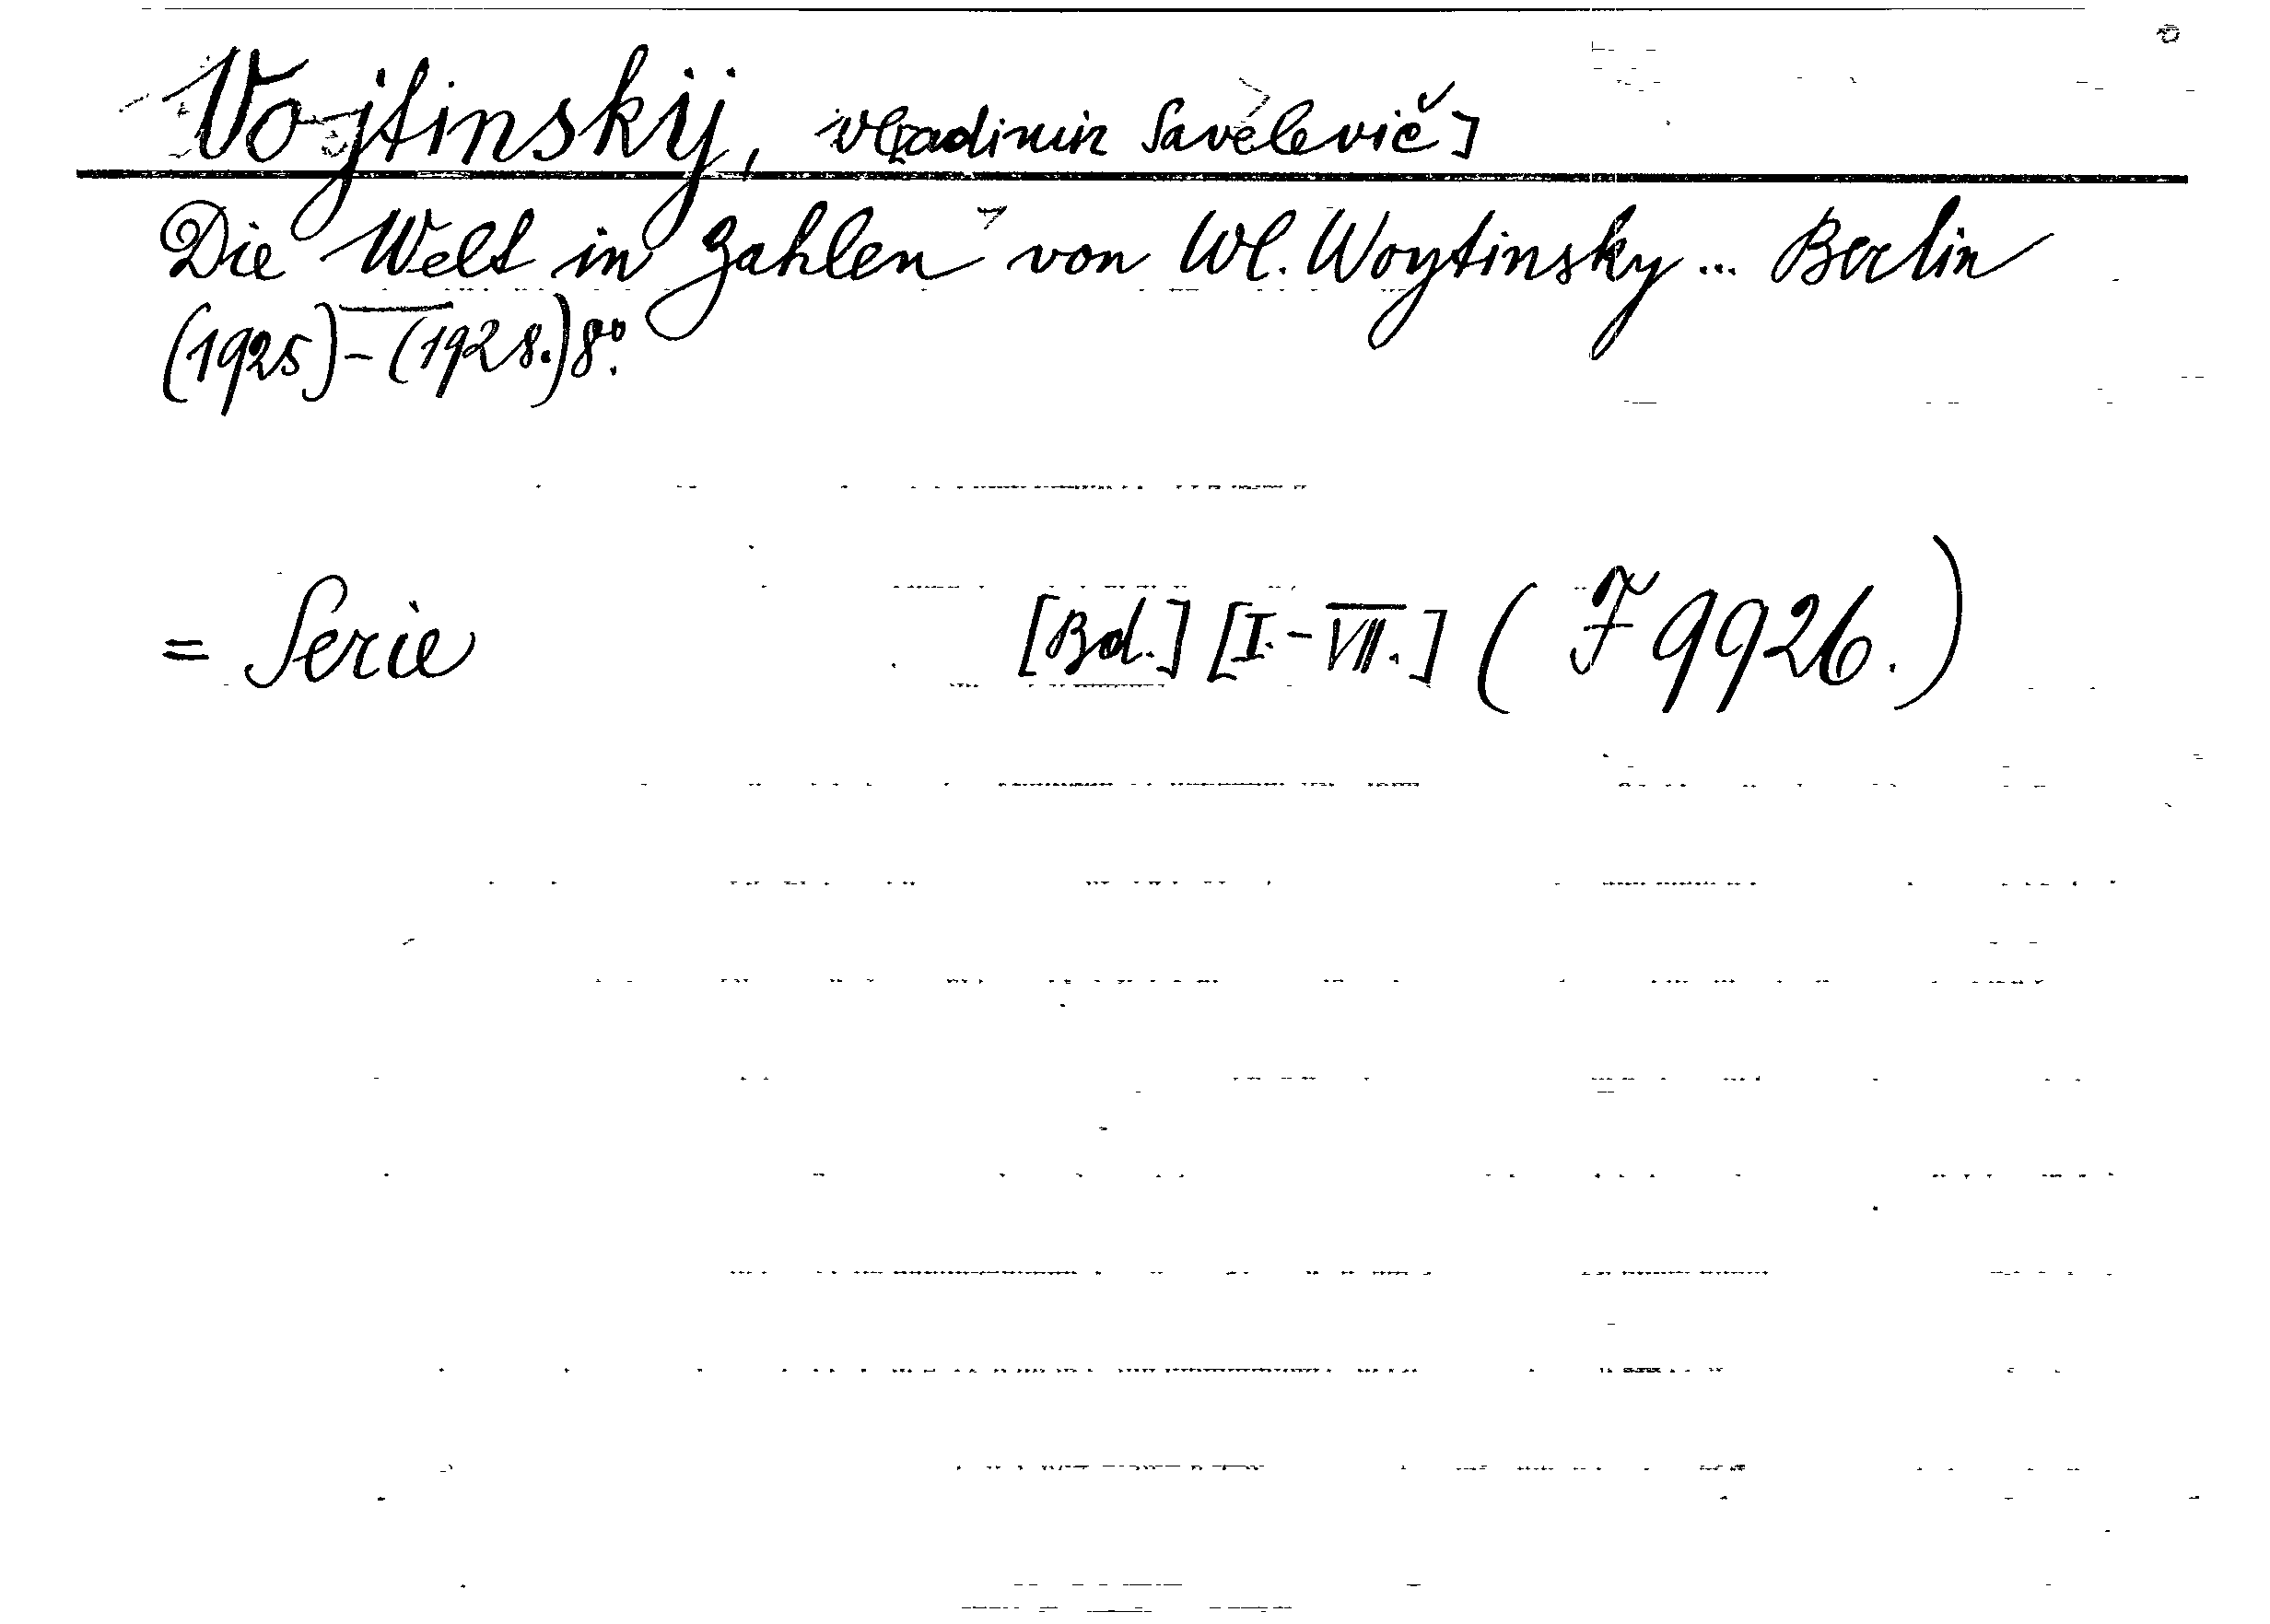 Vojtinskij, Vl[adimir Savélevič]
Die Welt in Zahlen von Wl. Woytinsky... Berlin
(1925)-(1928.) 8º.
= Serie [Bd.] [I.-VII.] (F 9926.)